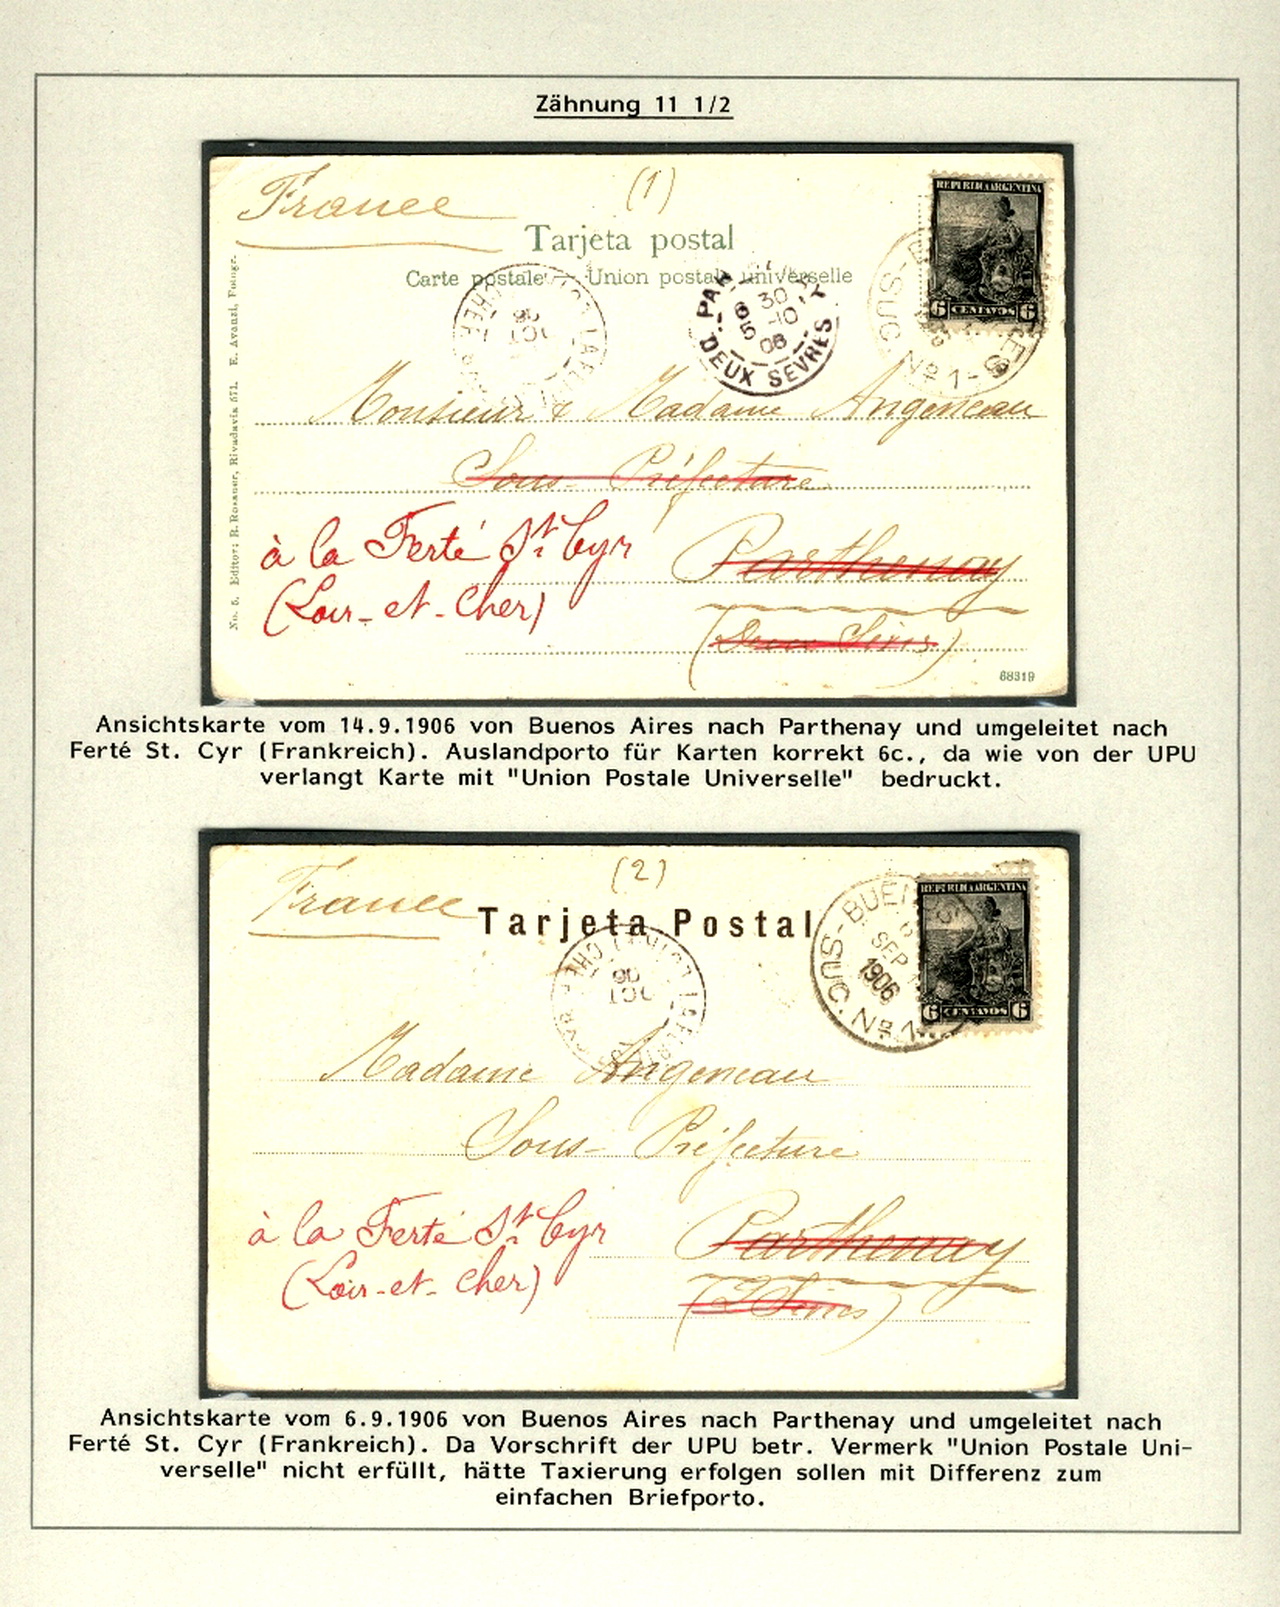 Zähnung 11 1/2
France
(1)
Tarjeta postal
Carte postale Union postale universelle
REPUBLICA ARGENTINA
6 CENTAVOS 6
30
6 -10
5
06
DEUX SEVRES
SUC. Nº 1-
Monsieur & Madame Angeneau
Sous-Préfecture
à la Ferté St. Cyr
Parthenay
(Loir-et-Cher)
(Deux Sèvres)
No. 5. Editor: R. Rosauer, Rivadavia 571. E. Avanzi, Fotogr.
68319
Ansichtskarte vom 14.9.1906 von Buenos Aires nach Parthenay und umgeleitet nach
Ferté St. Cyr (Frankreich). Auslandporto für Karten korrekt 6c., da wie von der UPU
verlangt Karte mit "Union Postale Universelle" bedruckt.
France
(2)
Tarjeta Postal
REPUBLICA ARGENTINA
6 CENTAVOS 6
6
SEP
1906
SUC. Nº 1
Madame Angeneau
Sous-Préfecture
à la Ferté St. Cyr
Parthenay
(Loir-et-Cher)
(2 Sèvres)
Ansichtskarte vom 6.9.1906 von Buenos Aires nach Parthenay und umgeleitet nach
Ferté St. Cyr (Frankreich). Da Vorschrift der UPU betr. Vermerk "Union Postale Uni-
verselle" nicht erfüllt, hätte Taxierung erfolgen sollen mit Differenz zum
einfachen Briefporto.